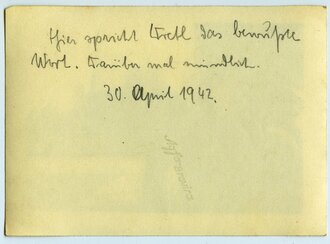 Hier spricht Gretl das bewußte
Wort. Darüber mal mündlich.
30. April 1942.